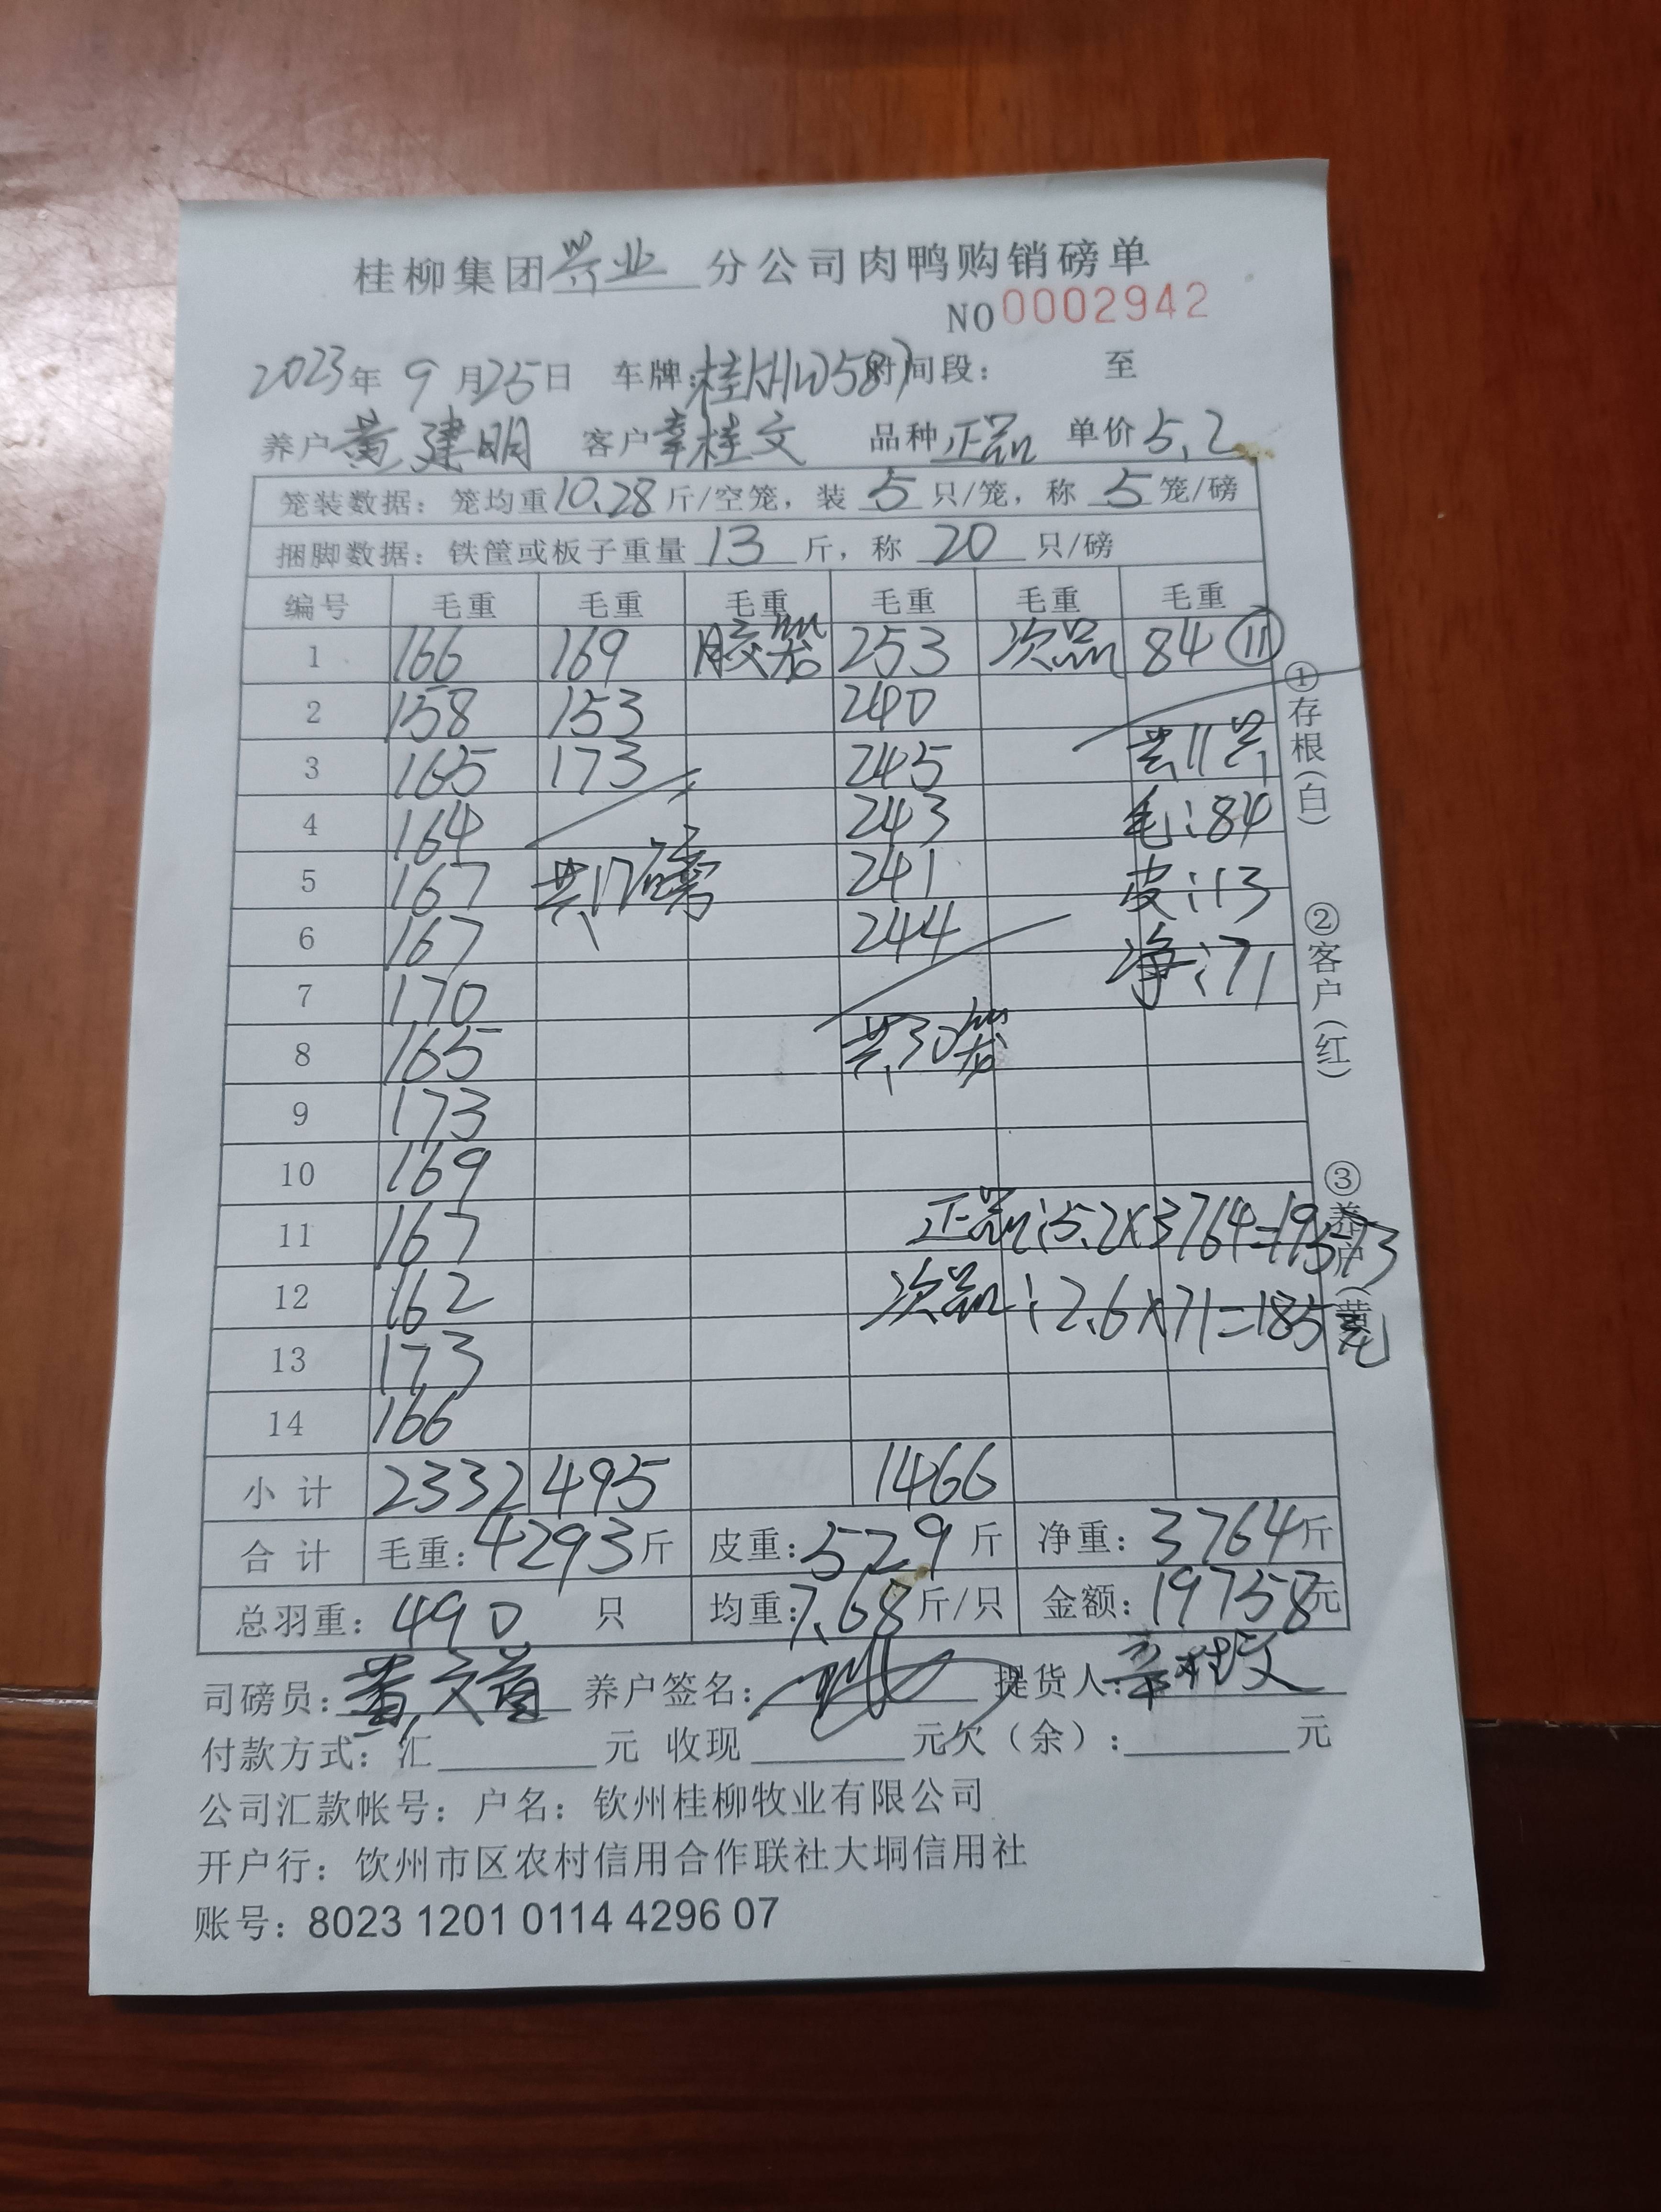 桂柳集团兴业分公司肉鸭购销磅单
NO0002942
2023年 9月25日 车牌:桂KHW587 时间段: 至
养户黄建明 客户辛桂文 品种正品 单价5.2
笼装数据: 笼均重10.28斤/空笼, 装5只/笼, 称5笼/磅
捆脚数据: 铁筐或板子重量13斤, 称20只/磅
编号 毛重 毛重 毛重 毛重 毛重 毛重
1 166 169 胶笼 253 次品 84 ⑪
2 158 153 240
3 165 173 245 共11只
4 164 243 毛:84
5 167 共17磅 241 皮:13
6 167 244 净:71
7 170
8 165 共30笼
9 173
10 169
11 167 正品:5.2×3764=19573
12 162 次品:2.6×71=185元
13 173
14 166
小计 2332 495 1466
合计 毛重:4293斤 皮重:529斤 净重:3764斤
总羽重:490只 均重:7.68斤/只 金额:19758元
司磅员: 养户签名: 提货人:辛桂文
付款方式: 汇 元 收现 元欠(余): 元
公司汇款帐号: 户名: 钦州桂柳牧业有限公司
开户行: 钦州市区农村信用合作联社大垌信用社
账号: 8023 1201 0114 4296 07
①存根(白)
②客户(红)
③养户(黄)